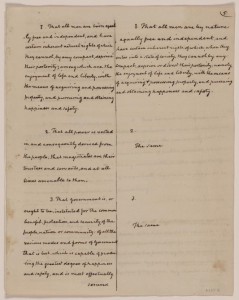 1. That all men are born equal-
ly free and independent, and have
certain inherent natural rights of which
they cannot by any compact, deprive
their posterity; among which are the
enjoyment of life and liberty, with
the means of acquiring and possessing
property, and pursuing and obtaining
happiness and safety.
2. That all power is vested
in and consequently derived from
the people, that magistrates are their
trustees and servants, and at all
times amenable to them.
3. That government is, or
ought to be, instituted for the common
benefit, protection and security of the
people, nation, or community: of all the
various modes and forms of government
that is best which is capable of produ-
cing the greatest degree of happiness
and safety, and is most effectually
secured
1. That all men are by nature
equally free and independent, and
have certain inherent rights, of which, when they
enter into a state of society, they cannot, by any
compact, deprive or divest their posterity; namely
the enjoyment of life and liberty, with the means
of acquiring and possessing property, and pursuing
and obtaining happiness and safety.
2.
The same
3.
The same